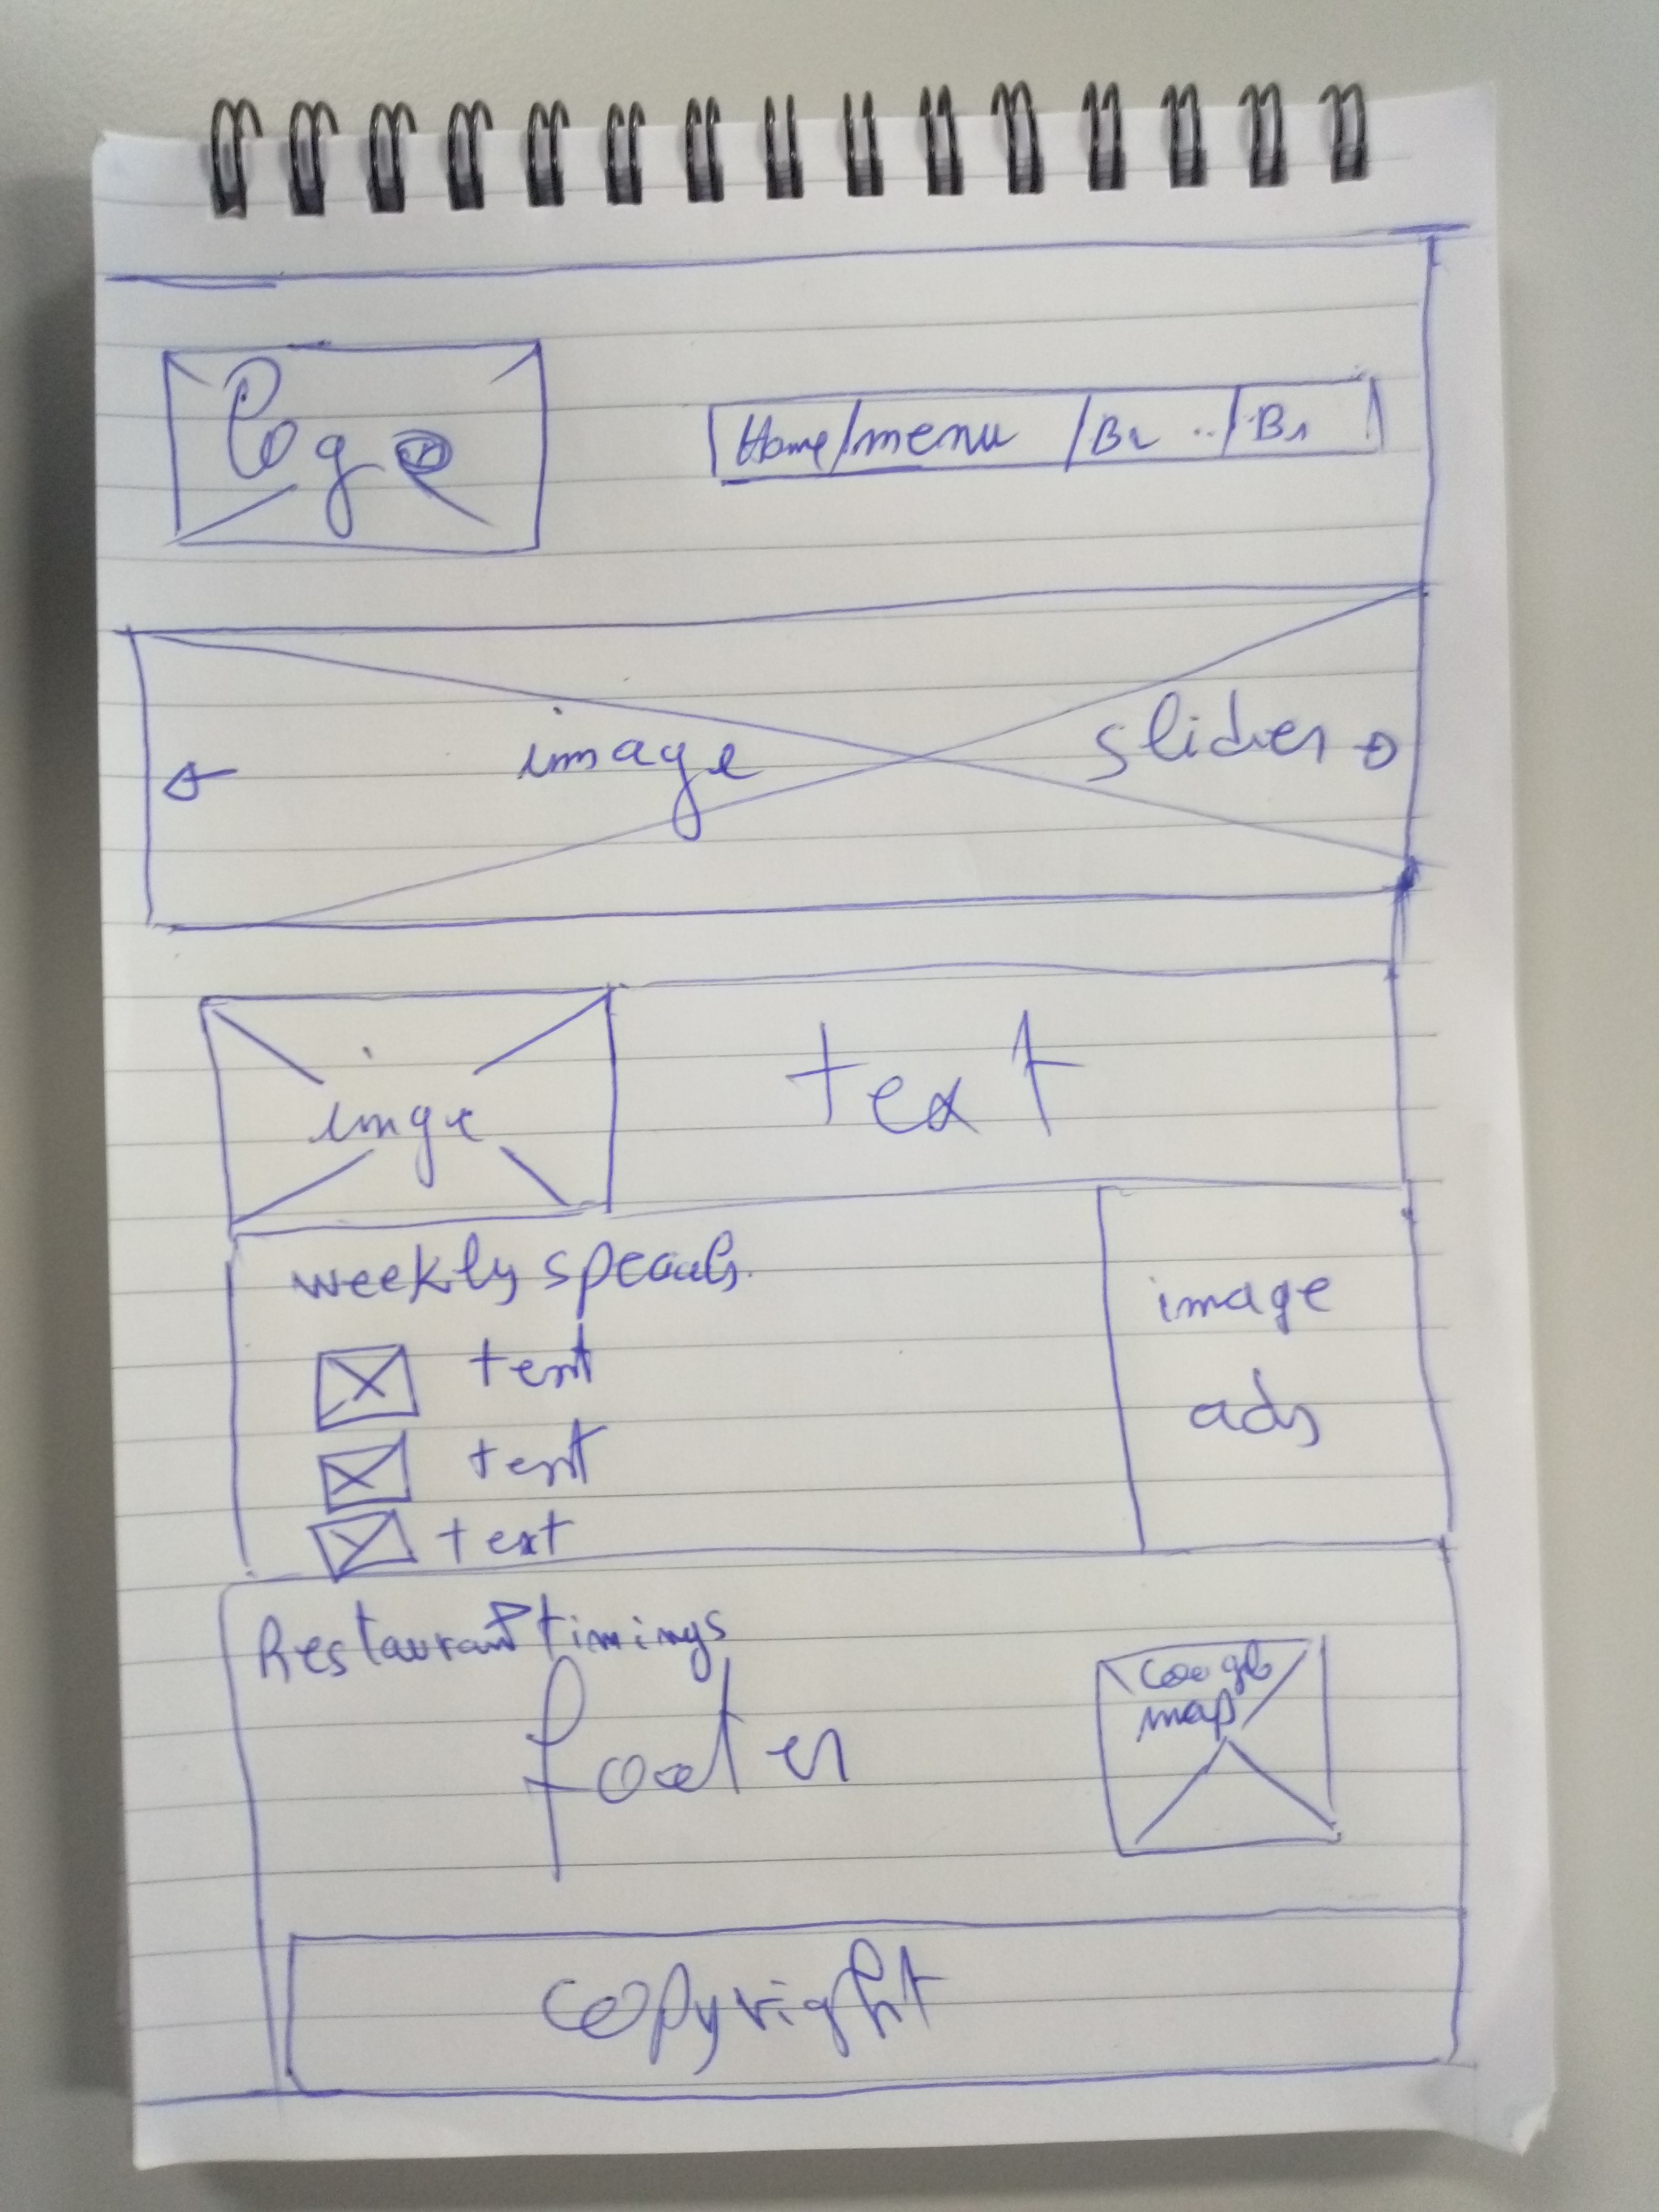 logo
Home/menu /B2 ../B1
image slider
imge
text
weekly specials.
text
text
text
image
ads
Restaurant timings
footer
Google
map
copyright